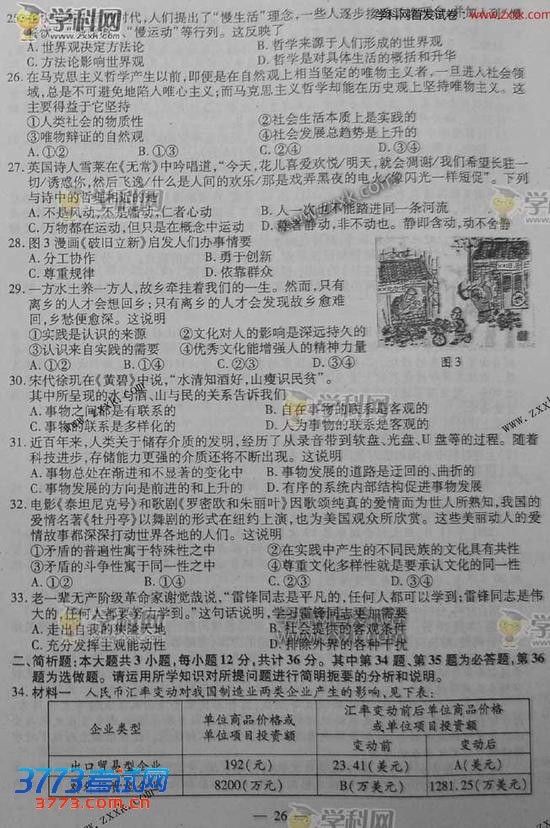 学科网首发试卷：www.zxxk.com
时代，人们提出了“慢生活”理念，一些人逐步接
“慢运动”等行列。这反映了
A. 世界观决定方法论 B. 哲学来源于人们形成的世界观
C. 方法论影响世界观 D. 哲学是对具体生活的概括和升华
26. 在马克思主义哲学产生以前，即便是在自然观上相当坚定的唯物主义者，一旦进入社会领
域，总是不可避免地陷入唯心主义；而马克思主义哲学却能在历史观上坚持唯物主义。这
主要得益于它坚持
①人类社会的物质性 ②社会生活本质上是实践的
③唯物辩证的自然观 ④社会发展总趋势是上升的
A. ①② B. ①③ C. ②④ D. ③④
27. 英国诗人雪莱在《无常》中吟唱道，“今天，花儿喜爱欢悦/明天，就会凋谢/我们希望长驻一
切/诱惑你，然后飞逸/什么是人间的欢乐/那是戏弄黑夜的电火/像闪光一样短促”。下列
与诗中的哲理相近的是
A. 不是风动，不是幡动，仁者心动 B. 人一次也不能踏进同一条河流
C. 万物都在运动，但只是在概念中运动 D. 静者静动，非不动也。静即含动，动不舍静
28. 图3漫画《破旧立新》启发人们办事情要
A. 分工协作 B. 勇于创新
C. 尊重规律 D. 依靠群众
29. 一方水土养一方人，故乡牵挂着我们的一生。然而，只有
离乡的人才会想回乡；只有离乡的人才会发现故乡愈难
回，乡愁便愈深。这说明
①实践是认识的来源 ②文化对人的影响是深远持久的
③认识来自实践的需要 ④优秀文化能增强人的精神力量
A. ①② B. ①④ C. ②③ D. ③④
图3
30. 宋代徐玑在《黄碧》中说，“水清知酒好，山瘦识民贫”。
其中所呈现的水与酒、山与民的关系告诉我们
A. 事物之间都是有联系的 B. 自在事物的联系是客观的
C. 事物的联系是多样化的 D. 人为事物的联系是客观的
31. 近百年来，人类关于储存介质的发明，经历了从录音带到软盘、光盘、U盘等的过程。随着
科技进步，存储能力更强的介质还将不断出现。这说明
A. 事物总处在渐进和不显著的变化中 B. 事物发展的道路是迂回的、曲折的
C. 事物发展的方向是前进的和上升的 D. 有序的系统内部结构促进事物发展
32. 电影《泰坦尼克号》和歌剧《罗密欧和朱丽叶》因歌颂纯真的爱情而为世人所熟知，我国的
爱情名著《牡丹亭》以舞剧的形式在纽约上演，也为美国观众所欣赏。这些美丽动人的爱
情故事都深深打动世界各地的人们。这说明
①矛盾的普遍性寓于特殊性之中 ②在实践中产生的不同民族的文化具有共性
③矛盾的斗争性寓于同一性之中 ④尊重文化多样性就是要承认文化的同一性
A. ①② B. ①③ C. ②④ D. ③④
33. 老一辈无产阶级革命家谢觉哉说，“雷锋同志是平凡的，任何人都可以学到；雷锋同志是伟
大的，任何人都要努力学到。”这句话说明，学习雷锋同志更加需要
A. 走出自我的狭隘天地 B. 社会提供的客观条件
C. 充分发挥主观能动性 D. 排除外界的各种干扰
二、简析题：本大题共3小题，每小题12分，共计36分。其中第34题、第35题为必答题，第36
题为选做题。请运用所学知识对所提问题进行简明扼要的分析和说明。
34. 材料一 人民币汇率变动对我国制造业两类企业产生的影响，见下表：
企业类型 单位商品价格或单位项目投资额 汇率变动前后单位商品价格或单位项目投资额
变动前 变动后
出口贸易型企业 192(元) 23.41(美元) A(美元)
8200(万元) B(万美元) 1281.25(万美元)
— 26 —
3773.com.cn 3773考试网